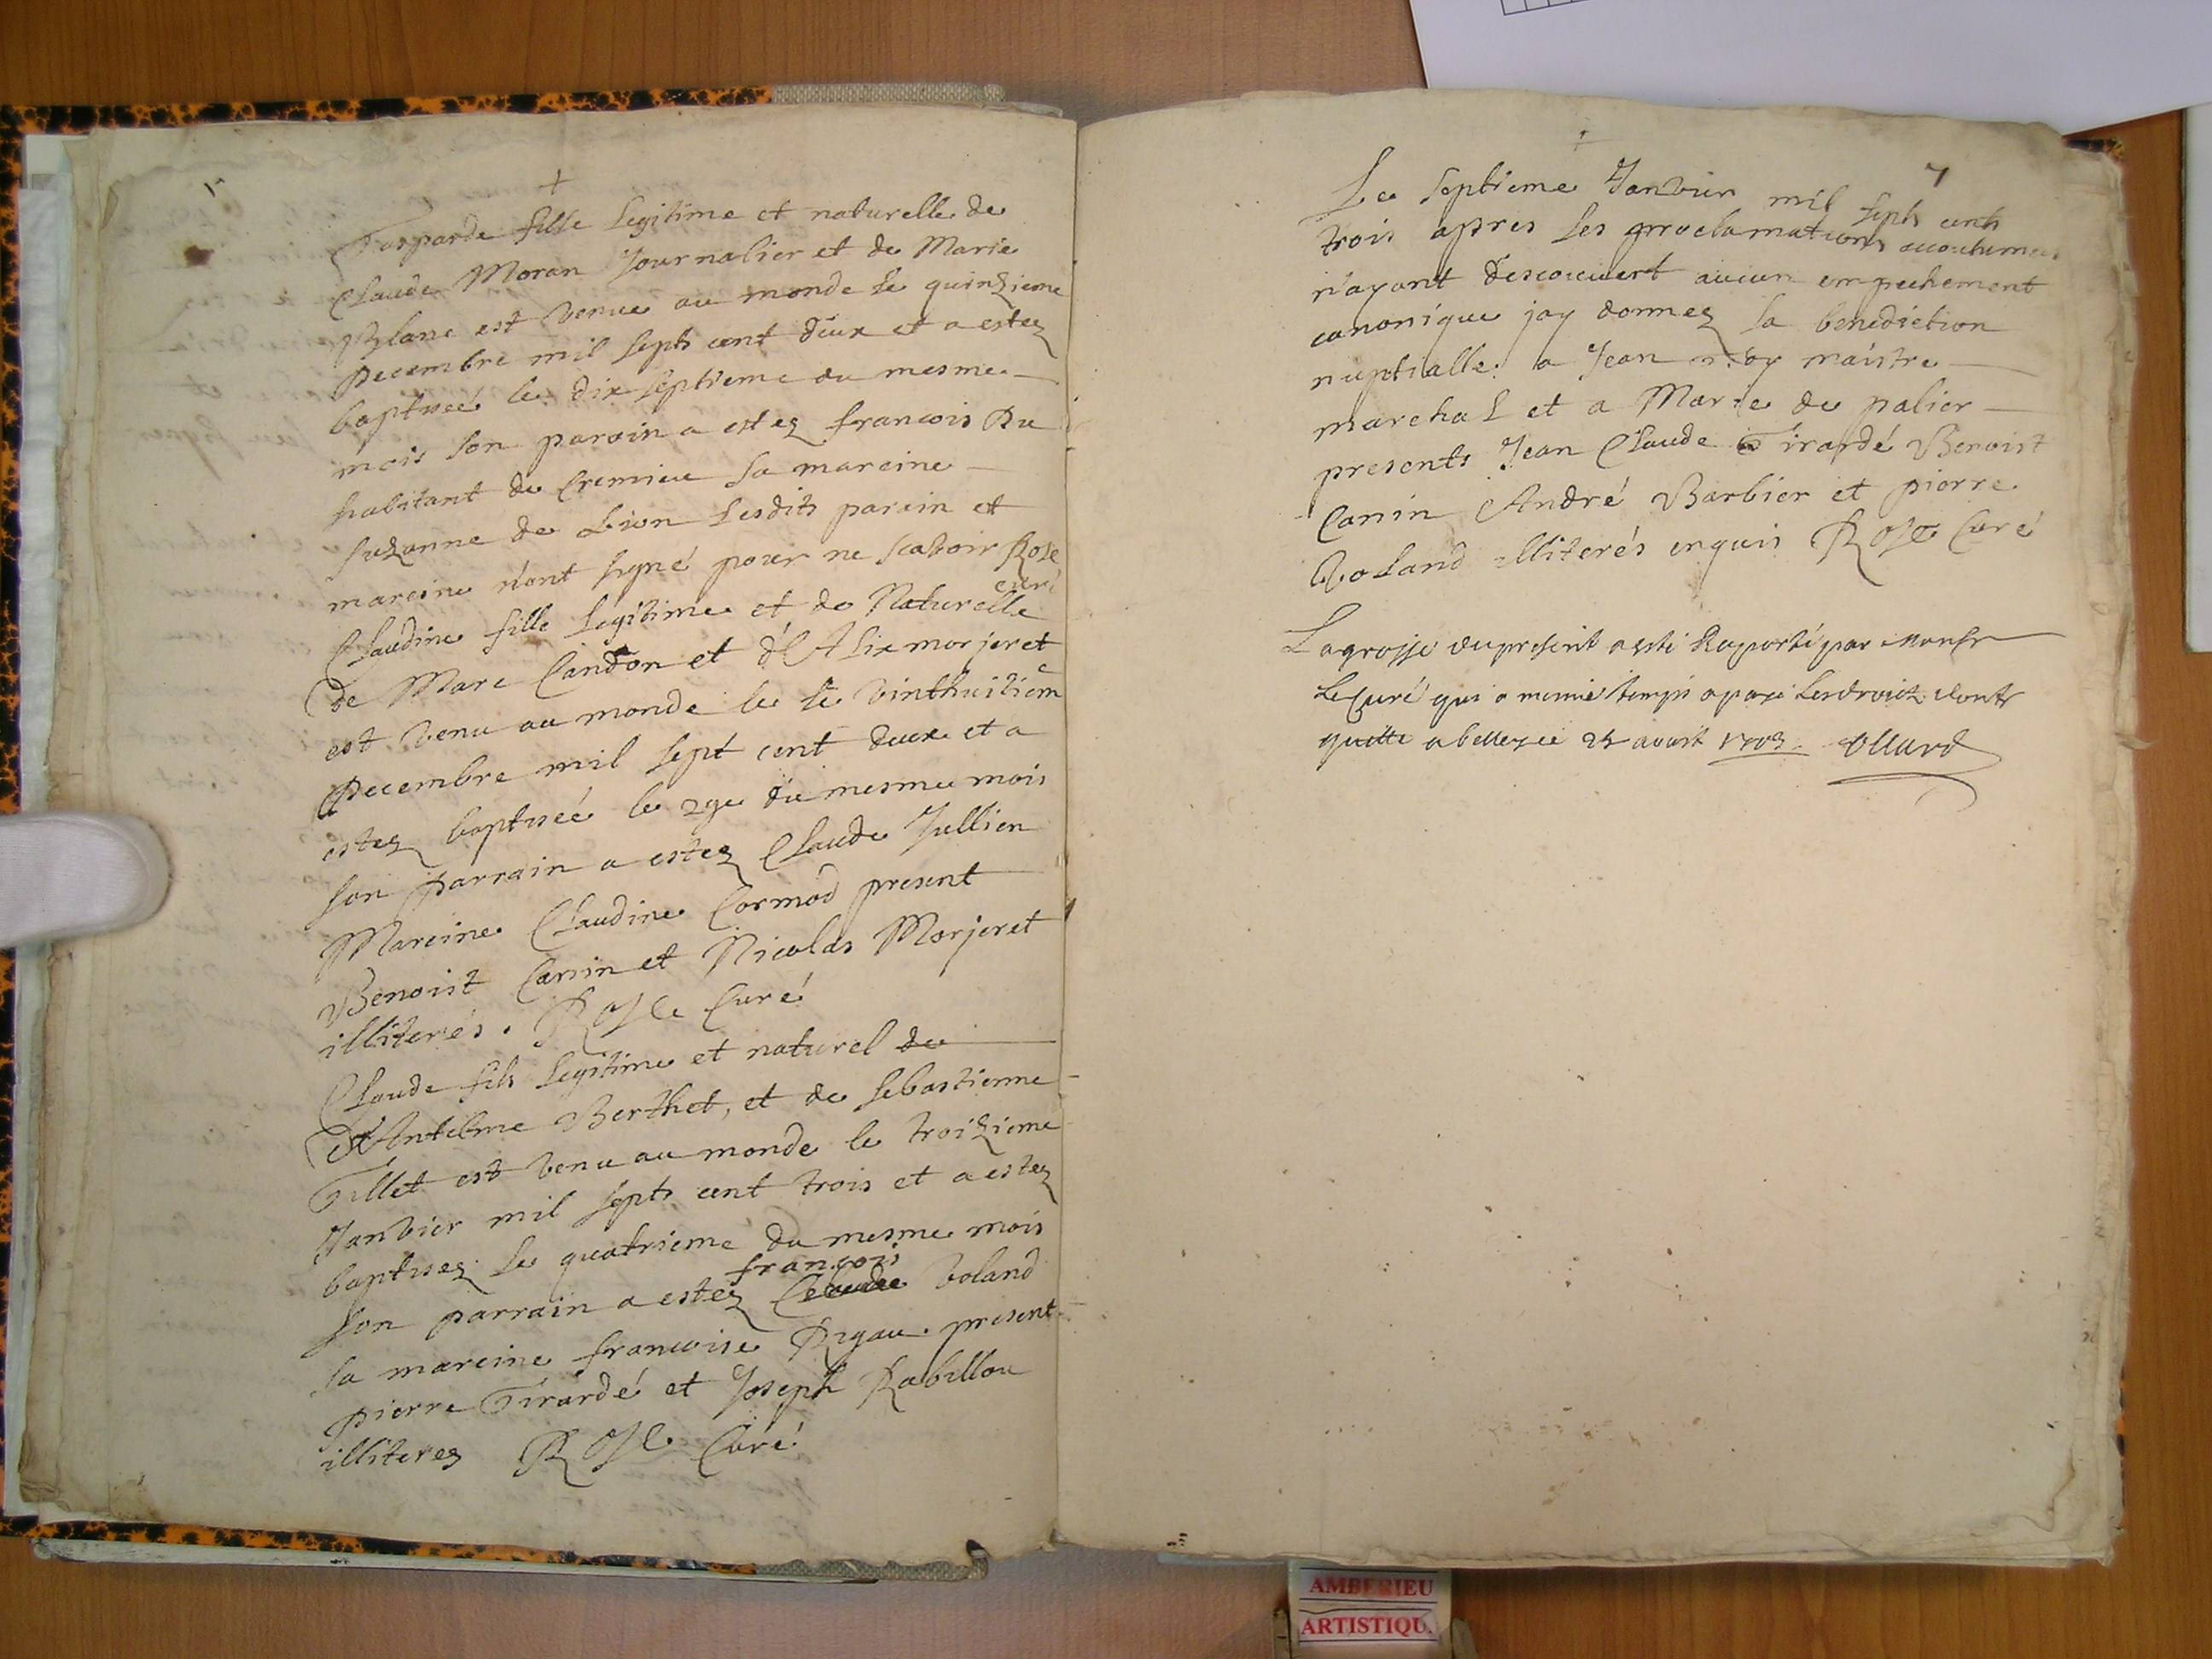 +
Gasparde fille legitime et naturelle de
Claude Moran Journalier et de Marie
Blanc est venue au monde le quinzieme
Decembre mil septs cent deux et a estez
baptiseé le dix septieme du mesme
mois son parain a estez francois Du
habitant de Cremieu sa mareine
suzanne de Lion lesdits parein et
mareine n'ont signé pour ne scavoir Rose
curé
Claudine fille legitime et de Naturelle
de Marc Candon et d'Alix morjeret
est venu au monde le le vinthuitieme
Decembre mil sept cent deux et a
estez baptiseé le 29e du mesme mois
son parrain a estez Claude Jullien
Mareine Claudine Cormod present
Benoist Canin et Nicolas Morjeret
illiterés. Rose Curé
Claude fils legitime et naturel de
d'Antelme Berthet, et de sebastienne
Tillet est venu au monde le troizieme
Janvier mil septs cent trois et a estez
baptisez le quatrieme du mesme mois
francois
son parrain a estez Claude boland
sa mareine francoise Rigau. present
pierre Girardé et Joseph Rabillou
illiterez Rose Curé
7
Le septieme Janvier mil septs cents
trois apres les proclamations accoutumeés
n'ayant descouvert aucun empechement
canonique jay donnez la benediction
nuptialle a Jean maistre
marchal et a Marie du palier
presents Jean Claude Girardé Benoist
Canin André Barbier et pierre
boland illiterés enquis Rose Curé
La grosse du present a esté Raporté par Monsr
Le Curé qui a mesme temps a payé Les droictz dont
quitte a belley ce 25 aoust 1703. Ollard
AMBERIEU
ARTISTIQU